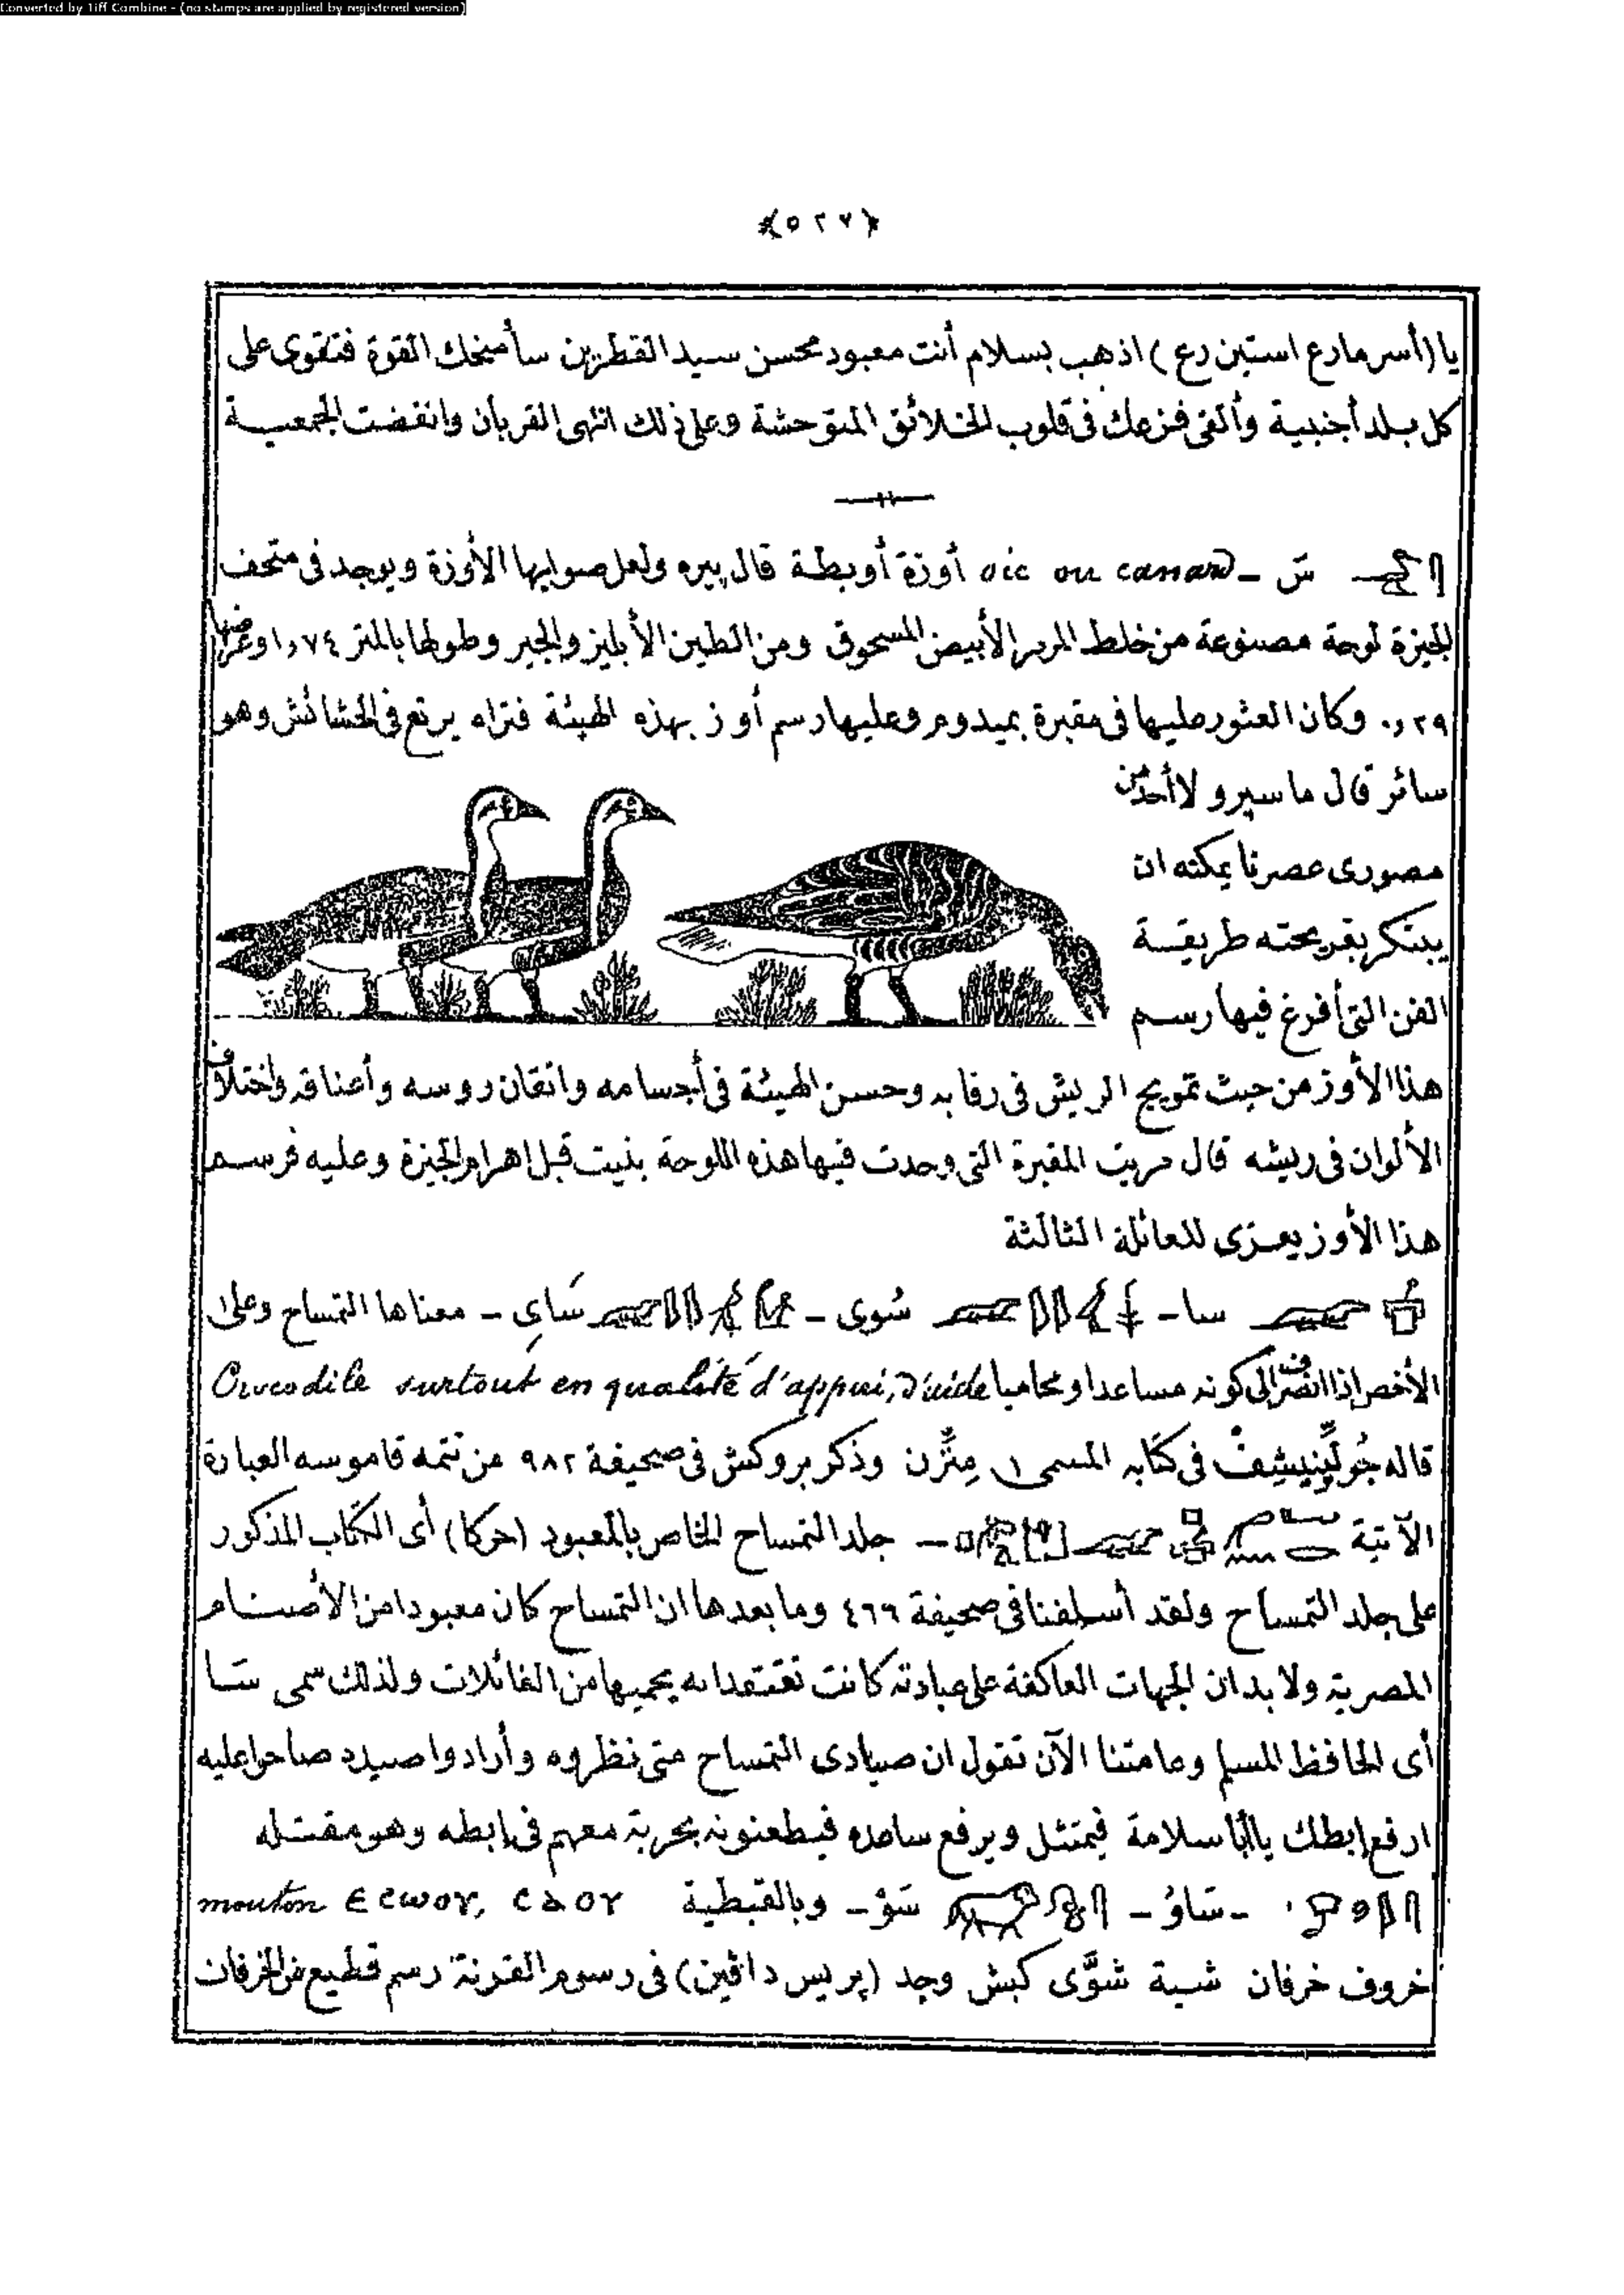 Converted by Tiff Combine - (no stamps are applied by registered version)
﴿٥٢٧﴾
يا (أسر مارع استبن رع) اذهب بسلام أنت معبود محسن سيد القطرين سأمنحك القوة فتقوى على
كل بلد أجنبية وألقى فزعك فى قلوب الخلائق المتوحشة وعلى ذلك انتهى القربان وانفضت الجمعية
سَ – oie ou canard أوزة أوبطة قال پيره ولعل صوابها الأوزة ويوجد فى متحف
الجيزة لوحة مصنوعة من خلط المرمر الأبيض المسحوق ومن الطين الأبليز والجير وطولها بالمتر ١٫٧٤ وعرضها
٠٫٢٩ وكان العثور عليها فى مقبرة بميدوم وعليها رسم أوز بهذه الهيئة فتراه يرتع فى الحشائش وهو
سائر قال ماسپرو لا أحد من
مصورى عصرنا يمكنه ان
يبتكر بقريحته طريقة
الفن التى أفرغ فيها رسم
هذا الأوز من حيث تمويج الريش فى رقابه وحسن الهيئة فى أجسامه واتقان روسه وأعناقه واختلاف
الألوان فى ريشه قال مريت المقبرة التى وجدت فيها هذه اللوحة بنيت قبل اهرام الجيزة وعليه فرسم
هذا الأوز يعزى للعائلة الثالثة
سا – سُوى – سَاىِ – معناها التمساح وعلى
الأخص اذا انصرف الى كونه مساعدا ومحاميا Crocodile surtout en qualité d'appui, d'aide
قاله جُولِنِيشِفْ فى كتابه المسمى مِتَّرْن وذكر بروكش فى صحيفة ٩٨٢ من تتمه قاموسه العبارة
الآتية – جلد التمساح الخاص بالمعبود (حركا) أى الكتاب المذكور
على جلد التمساح ولقد أسلفنا فى صحيفة ٤٦٦ وما بعدها ان التمساح كان معبودا من الأصنام
المصرية ولا بد ان الجهات العاكفة على عبادته كانت تعتقد انه يحميها من الغائلات ولذلك سمى سَا
أى الحافظ المسلم وعامتنا الآن تقول ان صيادى التمساح متى نظروه وأرادوا صيده صاحوا عليه
ارفع ابطك ياأبا سلامة فيمتثل ويرفع ساعده فيطعنونه بحربة معهم فى ابطه وهو مقتله
– سَاوُ – سَوْ – وبالقبطية ⲉⲥⲱⲟⲩ, ⲥⲁⲟⲩ mouton
خروف خرفان شية شوَّى كبش وجد (پريس داڤين) فى رسوم القرنة رسم قطيع من الخرفان